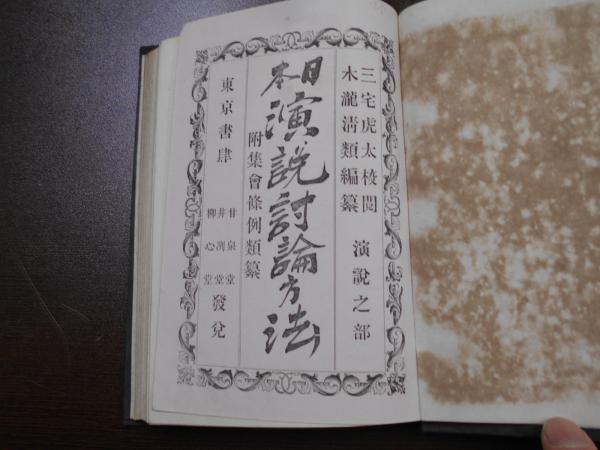 三宅虎太校閲
木瀧清類編纂
演説之部
日本演説討論方法
附集會條例類纂
東京書肆
甘泉堂
井洌堂
柳心堂
發兌